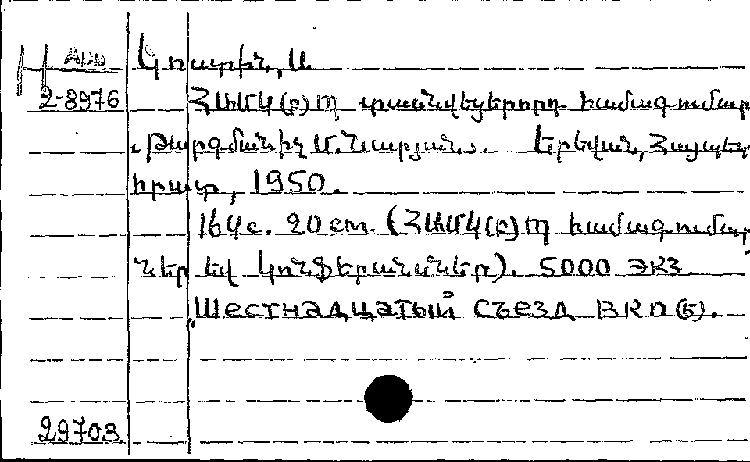 Арм
2-8976
Կոստին, Ա.
ՀԱՄԿ(բ)Պ տասնվեցերորդ համագումար
Թարգմանիչ Մ. Նարյան. Երեվան, Հայպետ
հրատ, 1950.
164с. 20 cm. (ՀԱՄԿ(բ)Պ համագումար
ներ եվ կոնֆերանսներ). 5000 экз
Шестнадцатый съезд ВКП(б).
29703